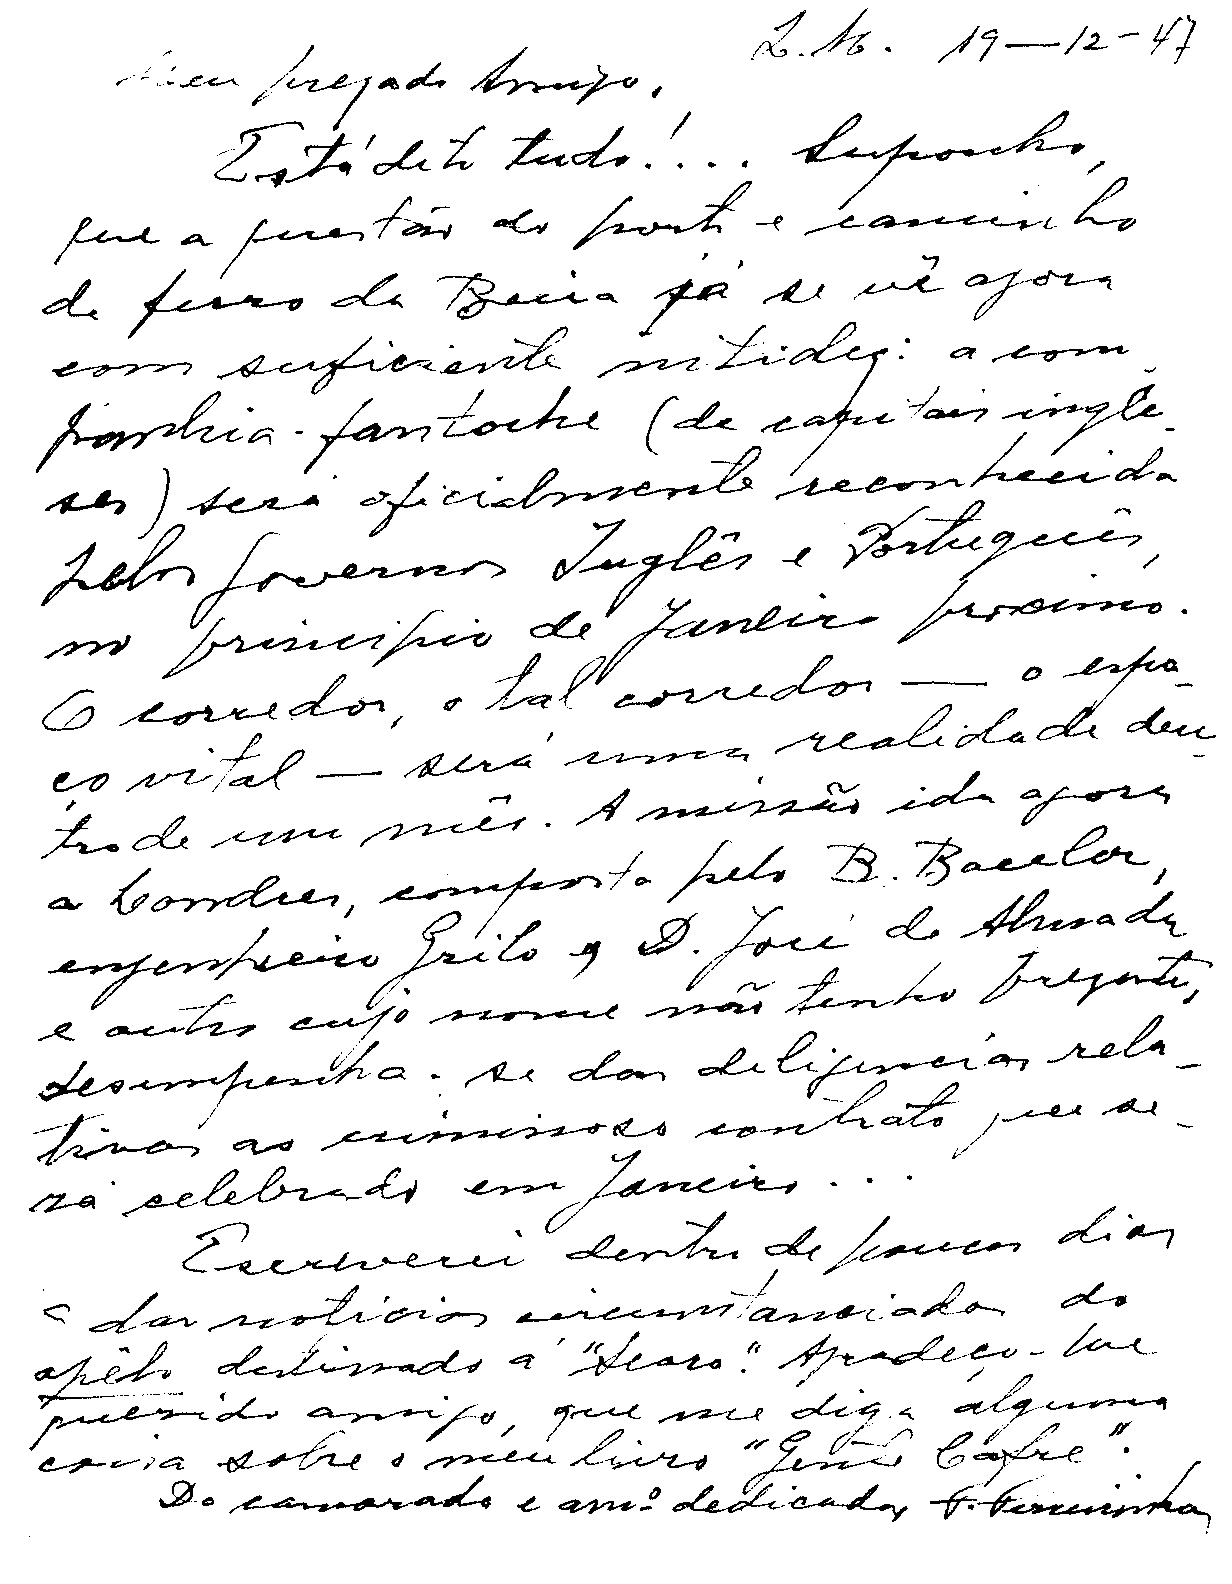 L. M. 19-12-47
Meu prezado Amigo,
Está dito tudo!... Suponho,
que a questão do porto e caminho
de ferro da Beira já se vê agora
com suficiente nitidez: a com-
panhia-fantoche (de capitais ingle-
ses) será oficialmente reconhecida
pelos Governos Inglês e Português,
no princípio de Janeiro proximo.
O corredor, o tal corredor — o espa-
ço vital — será uma realidade den-
tro de um mês. A missão ida agora
a Londres, composta pelo B. Bacelar,
engenheiro Grilo e D. José de Almada
e outro cujo nome não tenho presente,
desempenha-se das deligencias rela-
tivas ao criminoso contrato que se-
rá celebrado em Janeiro...
Escreverei dentro de poucos dias
a dar noticias circunstanciadas do
apêlo destinado á "Seara". Agradeço-lhe
querido amigo, que me diga alguma
coisa sobre o meu livro "Gente Cafre".
Do camarada e amº dedicado, F. Ferreirinha